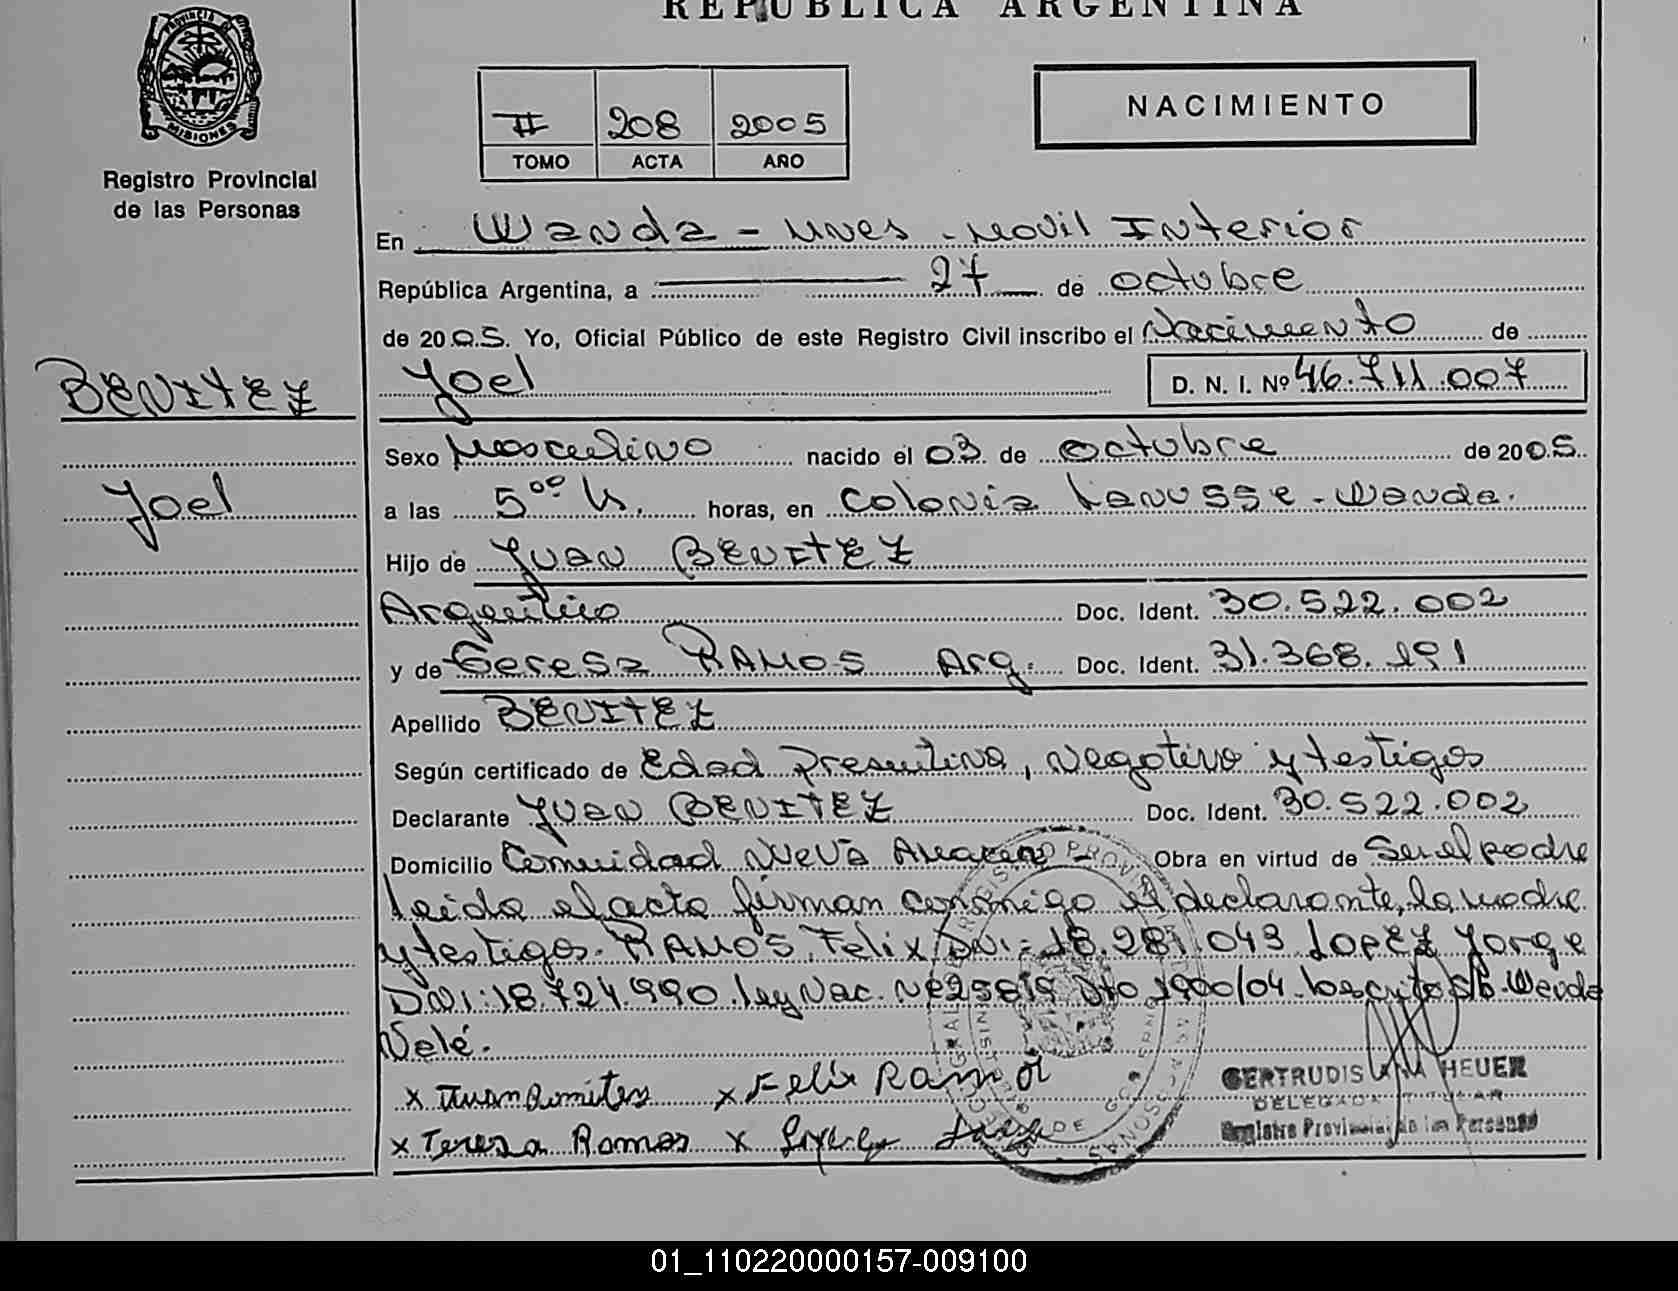 REPUBLICA ARGENTINA
PROVINCIA DE
MISIONES
Registro Provincial
de las Personas
II 208 2005
TOMO ACTA AÑO
NACIMIENTO
En Wanda - Unes - Movil Interior
República Argentina, a 27 de octubre
de 2005. Yo, Oficial Público de este Registro Civil inscribo el Nacimiento de
Joel D. N. I. Nº 46.711.007
BENITEZ
Joel
Sexo Masculino nacido el 03 de octubre de 2005.
a las 5⁰⁰ h. horas, en Colonia Lanusse - Wanda.
Hijo de Juan BENITEZ
Argentino Doc. Ident. 30.522.002
y de Teresa RAMOS Arg. Doc. Ident. 31.368.191
Apellido BENITEZ
Según certificado de Edad Presuntiva, Negativo y testigos
Declarante Juan BENITEZ Doc. Ident. 30.522.002
Domicilio Comunidad Nueva Obra en virtud de Ser el padre
Leida el acta firman conmigo el declarante, la madre
y testigos. RAMOS, Felix DNI: 18.281.043 LOPEZ Jorge
DNI: 18.724.990. ley Nac. Nº 25819 Dto 1900/04. Wanda
Vale.
x x Felix Ramos
x Teresa Ramos x
GERTRUDIS HEUER
DELEGADA TITULAR
Registro Provincial de las Personas
01_110220000157-009100